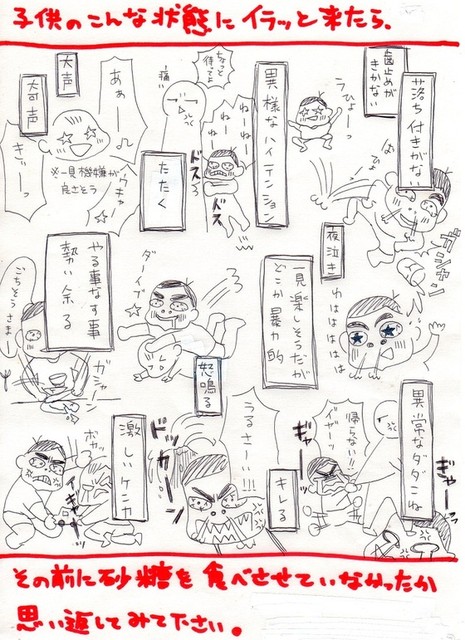 子供のこんな状態にイラッと来たら、
歯止めが
きかない
落ち付きがない
うひょーっ
異様なハイテンション
ちょっと
待ってよ
ねーねー
ねーねー
ドスッ
ドス
痛い
たたく
大声
奇声
あぁーっ
きぃーっ
ウキャキャ
※一見機嫌が
良さそう
ガシャーン
夜泣き
わはははは
一見楽しそうだが
どこか暴力的
ダーイブ
やる事なす事
勢い余る
ごちそうさまー
ガシャ
異常なダダこね
帰らない!!
イヤーッ
ギャーッ
ぎゃーっ
キレる
怒鳴る
うるさーい!!
激しいケンカ
ボカッ
その前に砂糖を食べさせていなかったか
思い返してみて下さい。